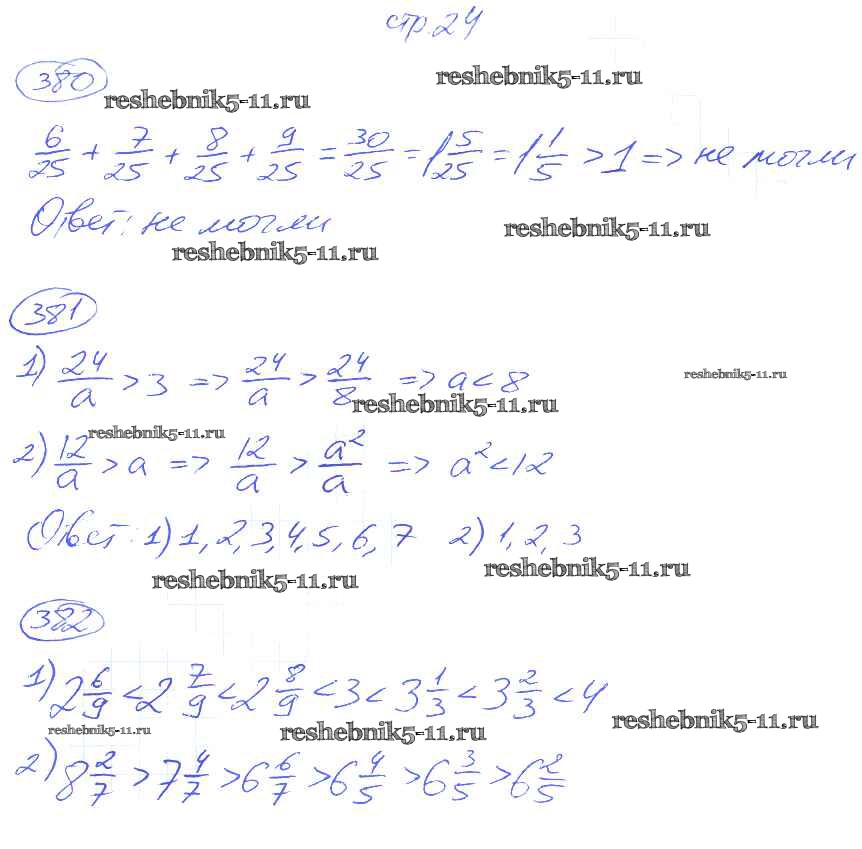 стр. 24
380
reshebnik5-11.ru reshebnik5-11.ru
6/25 + 7/25 + 8/25 + 9/25 = 30/25 = 1 5/25 = 1 1/5 > 1 => не могли
Ответ: не могли
reshebnik5-11.ru reshebnik5-11.ru
381
1) 24/a > 3 => 24/a > 24/8 => a < 8
reshebnik5-11.ru reshebnik5-11.ru
reshebnik5-11.ru
2) 12/a > a => 12/a > a²/a => a² < 12
Ответ: 1) 1, 2, 3, 4, 5, 6, 7 2) 1, 2, 3
reshebnik5-11.ru reshebnik5-11.ru
382
1) 2 6/9 < 2 7/9 < 2 8/9 < 3 < 3 1/3 < 3 2/3 < 4
reshebnik5-11.ru reshebnik5-11.ru reshebnik5-11.ru
2) 8 2/7 > 7 4/7 > 6 6/7 > 6 4/5 > 6 3/5 > 6 2/5